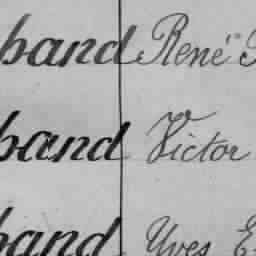 band René
band Victor
band Yves E